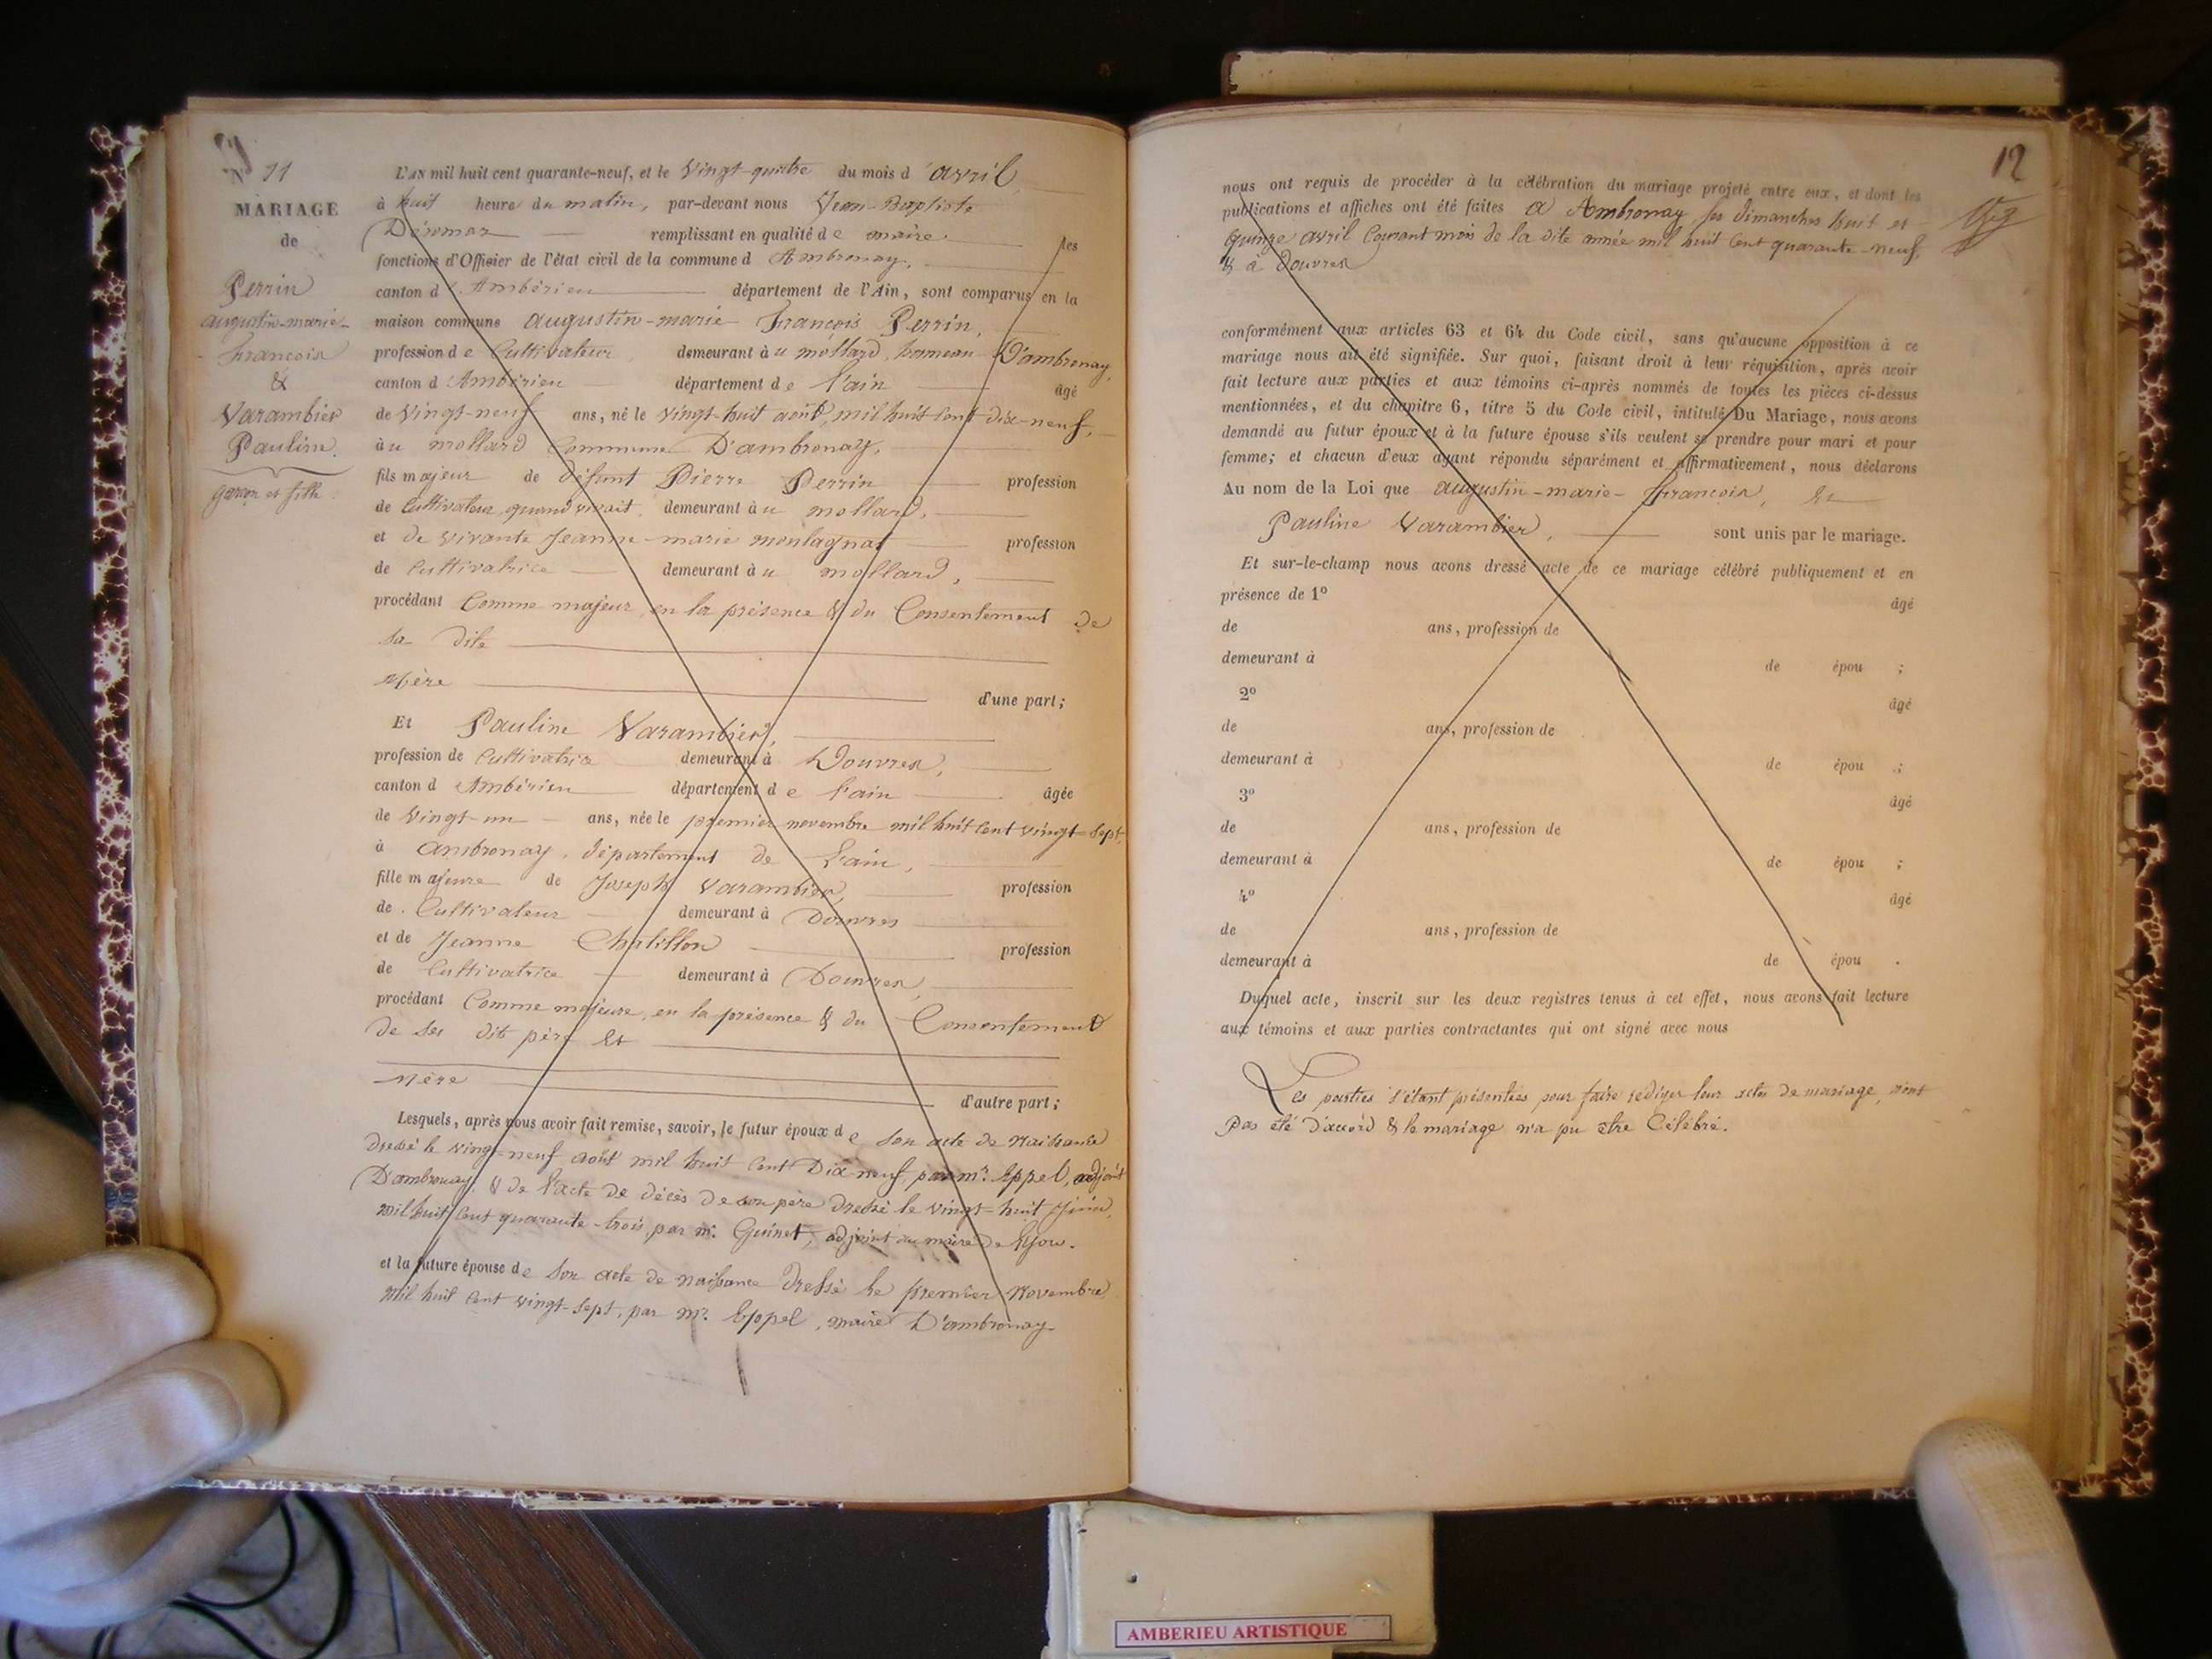 N° 11
MARIAGE
de
Perrin
augustin-marie-
francois
&
Varambier
Pauline.
garçon et fille.
L'AN mil huit cent quarante-neuf, et le Vingt-quatre du mois d'avril
à huit heure du matin, par-devant nous Jean-Baptiste
remplissant en qualité de maire les
fonctions d'Officier de l'état civil de la commune d'Ambronay,
canton d'Ambérieu département de l'Ain, sont comparus en la
maison commune augustin-marie françois Perrin,
profession de Cultivateur demeurant au mollard, hameau D'ambronay,
canton d'Ambérieu département de l'ain âgé
de Vingt-neuf ans, né le vingt-huit août, mil huit-cent-dix-neuf,
àu mollard Commune D'ambronay,
fils majeur de défunt Pierre Perrin profession
de Cultivateur quand vivait, demeurant àu mollard,
et de vivante Jeanne-marie montagnat profession
de Cultivatrice demeurant àu mollard,
procédant Comme majeur, en la présence & du Consentement de
sa dite
Mère d'une part;
Et Pauline Varambier,
profession de Cultivatrice demeurant à Douvres,
canton d'Ambérieu département de l'ain âgée
de vingt-un ans, née le premier novembre mil huit cent vingt-sept,
à ambronay, département de l'ain,
fille majeure de Joseph Varambier, profession
de Cultivateur demeurant à Douvres
et de Jeanne Chatillon profession
de Cultivatrice demeurant à Douvres,
procédant Comme majeure, en la présence & du Consentement
de ses dits père et
Mère d'autre part;
Lesquels, après nous avoir fait remise, savoir, le futur époux de son acte de Naissance
dressé le vingt-neuf août mil huit cent Dix-neuf, par mr. Eppel, adjoint
D'ambronay, & de l'acte de décès de son père dressé le vingt-huit
mil huit cent quarante-trois, par mr. Guinet, adjoint au maire de Lyon.
et la future épouse de son acte de naissance dressé le premier Novembre
mil huit cent vingt-sept, par mr. Eppel, maire D'ambronay
12
nous ont requis de procéder à la célébration du mariage projeté entre eux, et dont les
publications et affiches ont été faites a Ambronay les dimanches huit et
quinze avril Courant mois de la dite année mil huit cent quarante-neuf,
& à Douvres
conformément aux articles 63 et 64 du Code civil, sans qu'aucune opposition à ce
mariage nous ait été signifiée. Sur quoi, faisant droit à leur réquisition, après avoir
fait lecture aux parties et aux témoins ci-après nommés de toutes les pièces ci-dessus
mentionnées, et du chapitre 6, titre 5 du Code civil, intitulé Du Mariage, nous avons
demandé au futur époux et à la future épouse s'ils veulent se prendre pour mari et pour
femme; et chacun d'eux ayant répondu séparément et affirmativement, nous déclarons
Au nom de la Loi que augustin-marie-francois, Et
Pauline Varambier, sont unis par le mariage.
Et sur-le-champ nous avons dressé acte de ce mariage célébré publiquement et en
présence de 1° âgé
de ans, profession de
demeurant à de épou ;
2° âgé
de ans, profession de
demeurant à de épou ;
3° âgé
de ans, profession de
demeurant à de épou ;
4° âgé
de ans, profession de
demeurant à de épou .
Duquel acte, inscrit sur les deux registres tenus à cet effet, nous avons fait lecture
aux témoins et aux parties contractantes qui ont signé avec nous
Les parties s'étant présentées pour faire rédiger leur acte de mariage, n'ont
pas été d'accord & le mariage n'a pu être Célébré.
AMBERIEU ARTISTIQUE